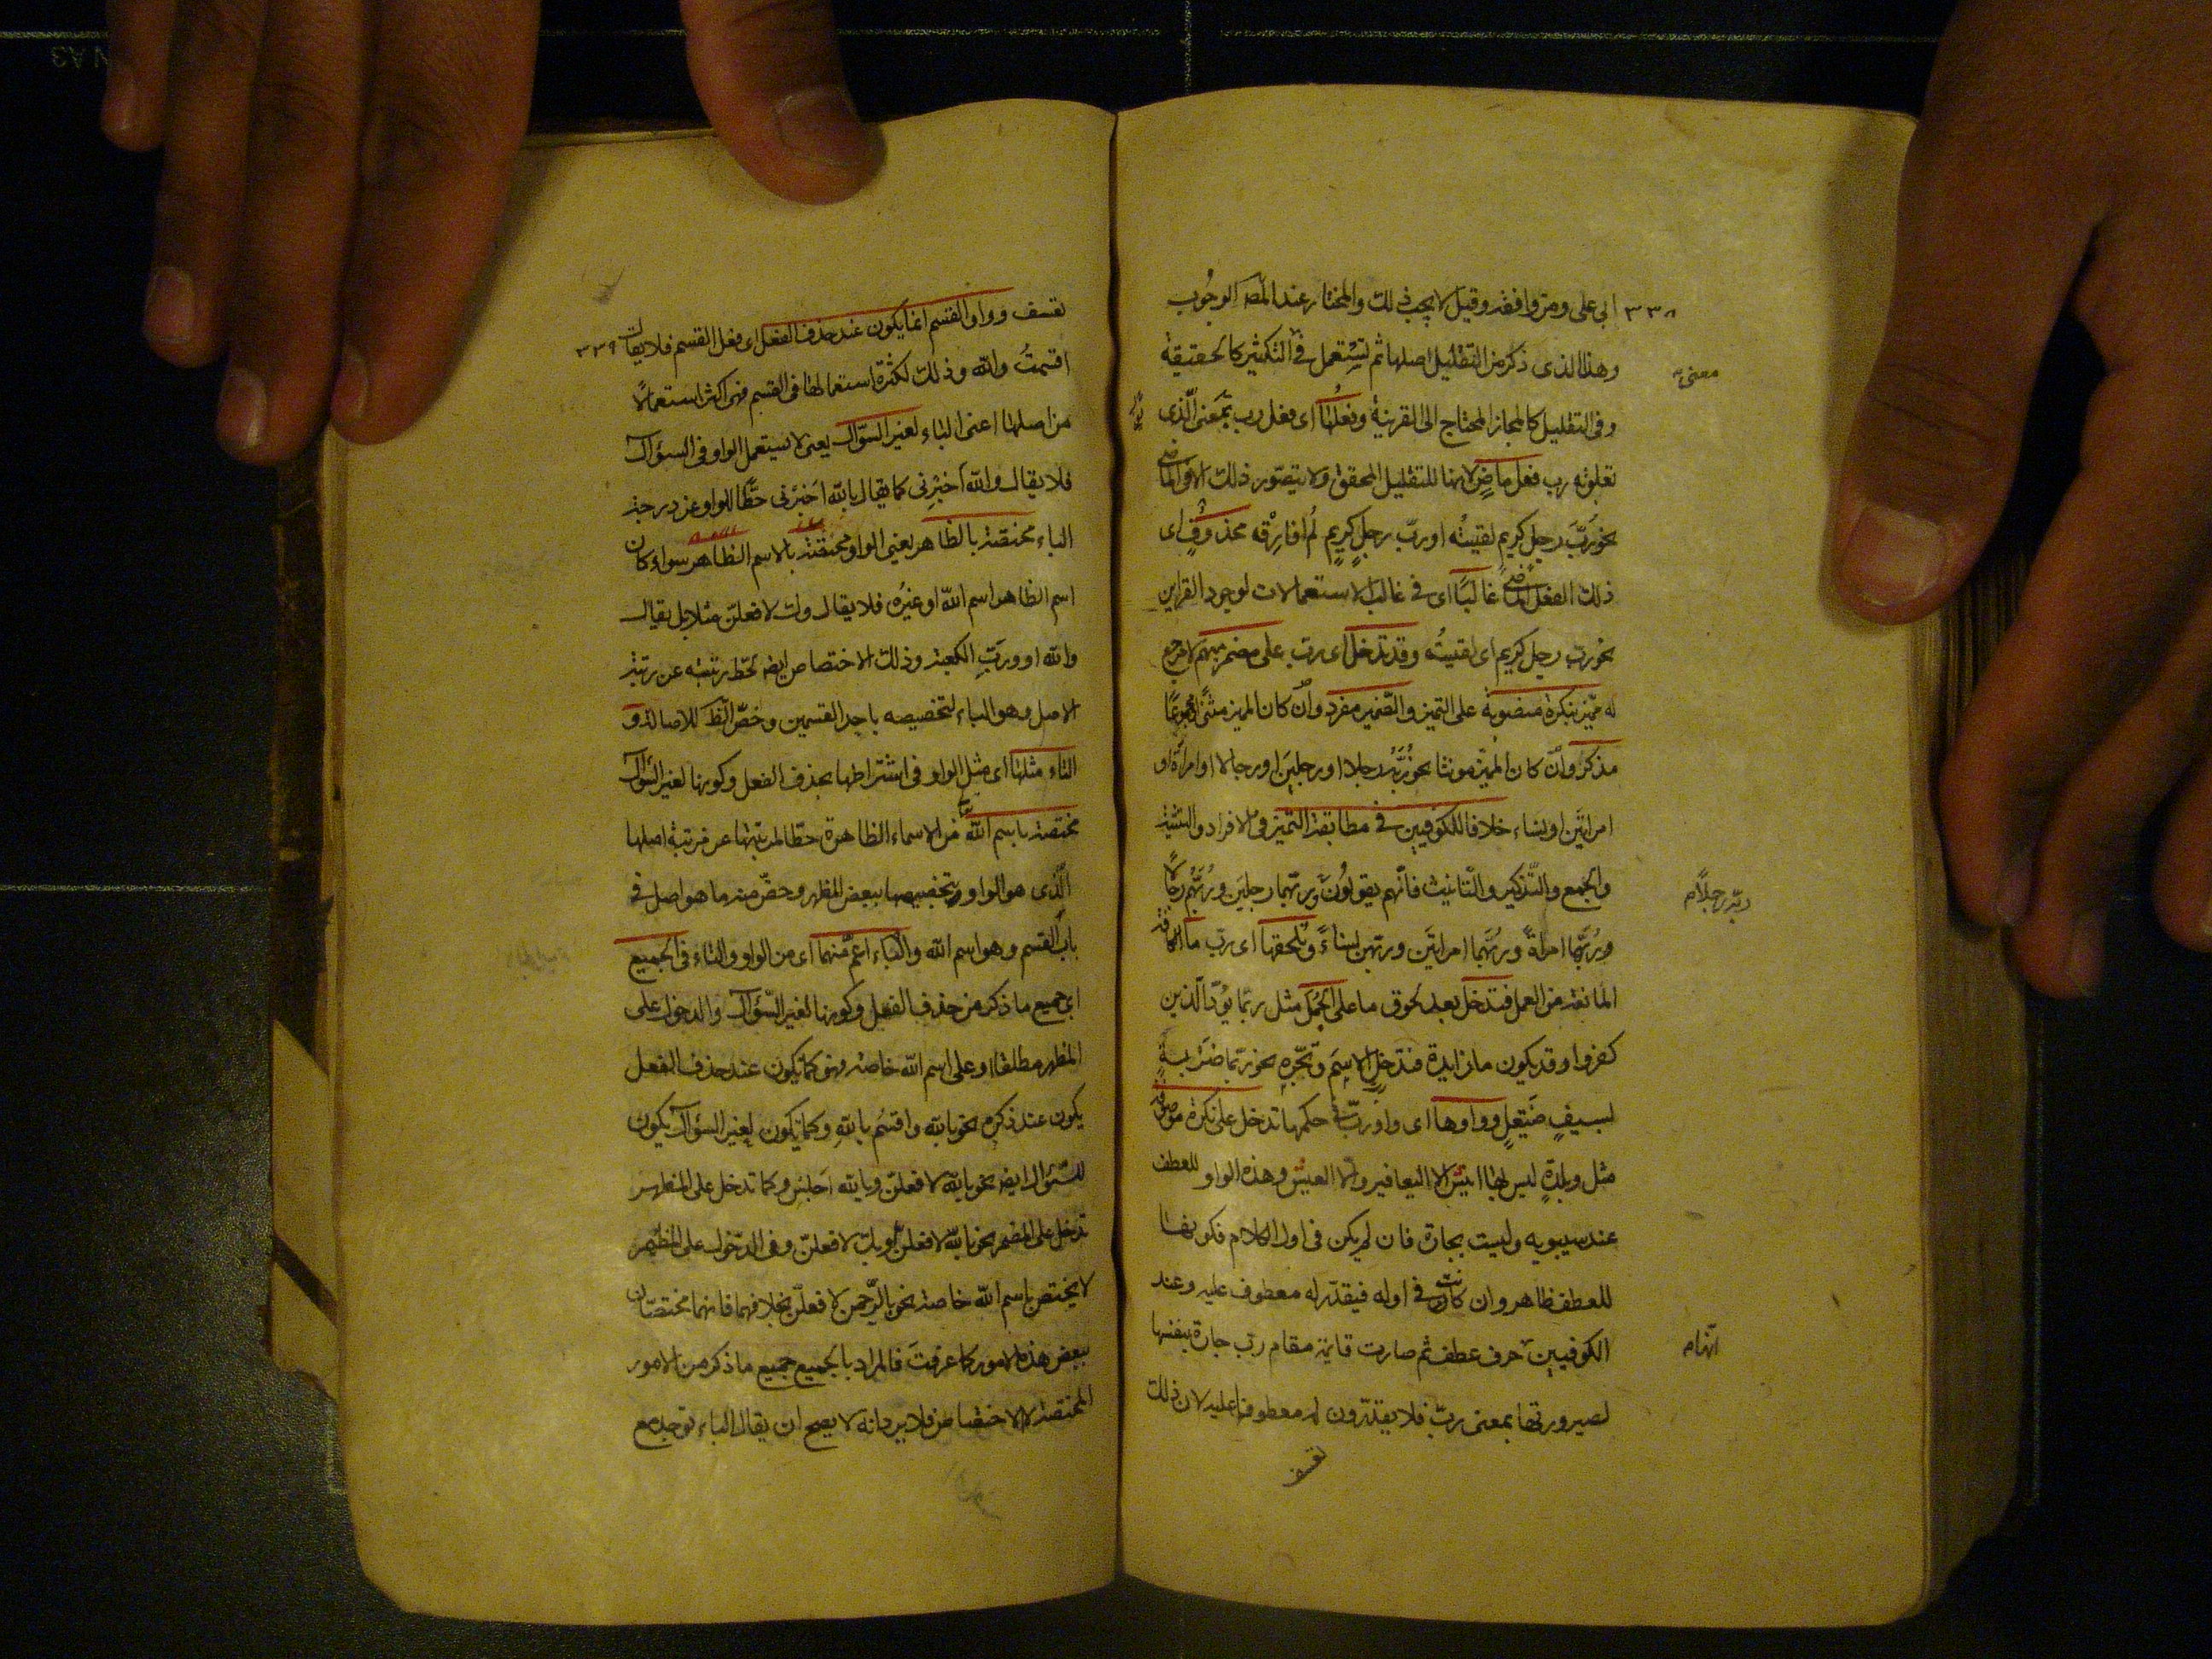 ٣٣٨ ابی علی ومن وافقه وقیل لا یجب ذلک والمختار عند المصـ الوجُوب
وهذا الذی ذکر من التقلیل اصلها ثم تستعمل فی التکثیر کالحقیقة
وفی التقلیل کالمجاز المحتاج الی القرینة وفعلها ای فعل رب بمعنی الّذی
تعلق به رب فعل ماضٍ لانها للتقلیل المحقق ولا یتصوّر ذلک الا فی الماضی
نحو رُبَّ رجل کریم لقیتُه او ربّ رجلٍ کریمٍ لم افارِقْه محذوفٌ ای
ذلک الفعل الماضی غالبًا ای فی غالب الاستعمالات لوجود القراین
نحو رب رجل کریم ای لقیتُه وقد تدخل ای رب علی مضمر مبهم لا مرجع
له ممیّز بنکرة منصوبة علی التمیز والضّمیر مفرد وان کان الممیز مثنًی او مجموعًا
مذکر وان کان الممیز مونثا نحو رُبَّهُ رجلا او رجلین او رجالا او امراةً او
امراتین او نساء خلافا للکوفیین فی مطابقة التمیز فی الافراد والتثنیة
والجمع والتّذکیر والتّانیث فانّهم یقولُونَ وربّهما رجلین ورُبَّهُم رجالًا
ورُبَّها امراةً ورُبَّهُما امراتَین وربهن نساءً وتلحقها ای رب ما الکافة
المانعة من العمل فتدخل بعد لحوق ما علی الجُمَل مثل ربّما یودّ الّذین
کفروا وقد یکون ما زایدة فتدخل الاسم وتجّره نحو ربّما ضَرْبةٍ
بسیفٍ صَیْقلٍ وواوها ای واو ربّ فی حکمها تدخل علی نکرة موصوفة
مثل وبلدةٍ لیس بها انیس الا الیعافیر والّا العیس وهذه الواو للعطف
عند سیبویه ولیست بجارة فان لم یکن فی اول الکلام فکونها
للعطف ظاهر وان کانت فی اوله فیقدّر له معطوف علیه وعند
الکوفیین حرف عطف ثم صارت قایمة مقام رب جارة بنفسها
لصیرورتها بمعنی ربّ فلا یقدّرون له معطوفا علیه لان ذلک
تعسف
معنی
ربه رجلا م
انها م
تعسف وواو القسم انما یکون عند حذف الفعل ای فعل القسم فلا یقال ٣٣٩
اقسمتُ واللّه وذلک لکثرة استعمالها فی القسم فهی اکثر استعمالًا
من اصلها اعنی الباء لغیر السّؤال یعنی لا یستعمل الواو فی السؤال
فلا یقال واللّه اخبرنی کما یقال باللّه اخبرنی حطًّا للواو عن درجة
الباء مختصّة بالظاهر یعنی الواو مختصّة بالاسم الظاهر سواء کان
اسم الظاهر اسم اللّه او غیره فلا یقال وک لافعلنّ مثلا بل یقال
واللّه او وربّ الکعبة وذلک الاختصاص ایض لحطّ رتبته عن رتبة
الاصل وهو الباء لتخصیصه باحد القسمین وخصّ الظـ للاصالة و
التاء مثلها ای مثل الواو فی اشتراطها بحذف الفعل وکونها لغیر السّؤال
مختصة باسم اللّه تعا من الاسماء الظاهرة حطّا لمرتبتها عن مرتبة اصلها
الّذی هو الواو بتخصیصها ببعض المظهر وخصّ منه ما هو اصل فی
باب القسم وهو اسم اللّه والباء اعمّ منهما ای من الواو والتاء فی الجمیع
ای جمیع ما ذکر من حذف الفعل وکونها لغیر السّؤال والدخول علی
المظهر مطلقا او علی اسم اللّه خاصة فهی کما یکون عند حذف الفعل
یکون عند ذکره نحو باللّه واقسُم باللّهِ وکما یکون لغیر السؤال یکون
للسّؤال ایض نحو باللّه لافعلنّ وباللّه اجلِس وکما تدخل علی المظهر
تدخل علی المضمر نحو باللّه لافعلنّ وبک لافعلنّ وفی الدّخول علی المظهر
لا یختص باسم اللّه خاصة نحو بالرّحمن لافعلنّ بخلافهما فانهما مختصّان
ببعض هذه الامور کما عرفتَ فالمراد بالجمیع جمیع ما ذکر من الامور
المختصة لا الاختصاص فلا یرد انه لا یصح ان یقال الباء توجد مع